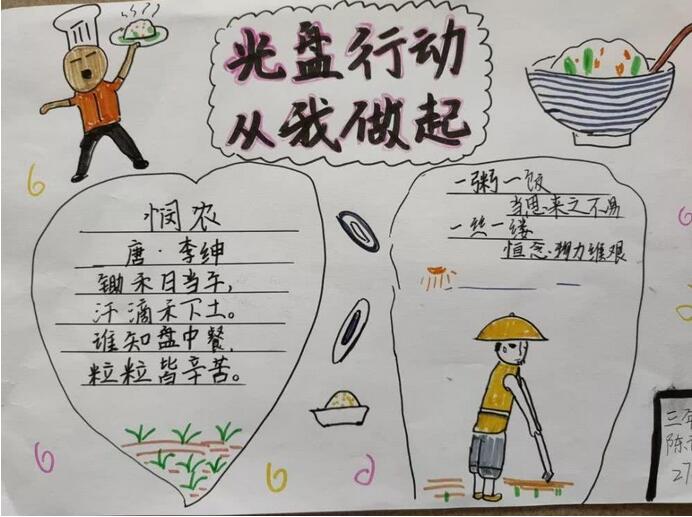 光盘行动
从我做起
悯农
唐·李绅
锄禾日当午,
汗滴禾下土。
谁知盘中餐,
粒粒皆辛苦。
一粥一饭
当思来之不易
一丝一缕
恒念物力维艰
三年
陈
27